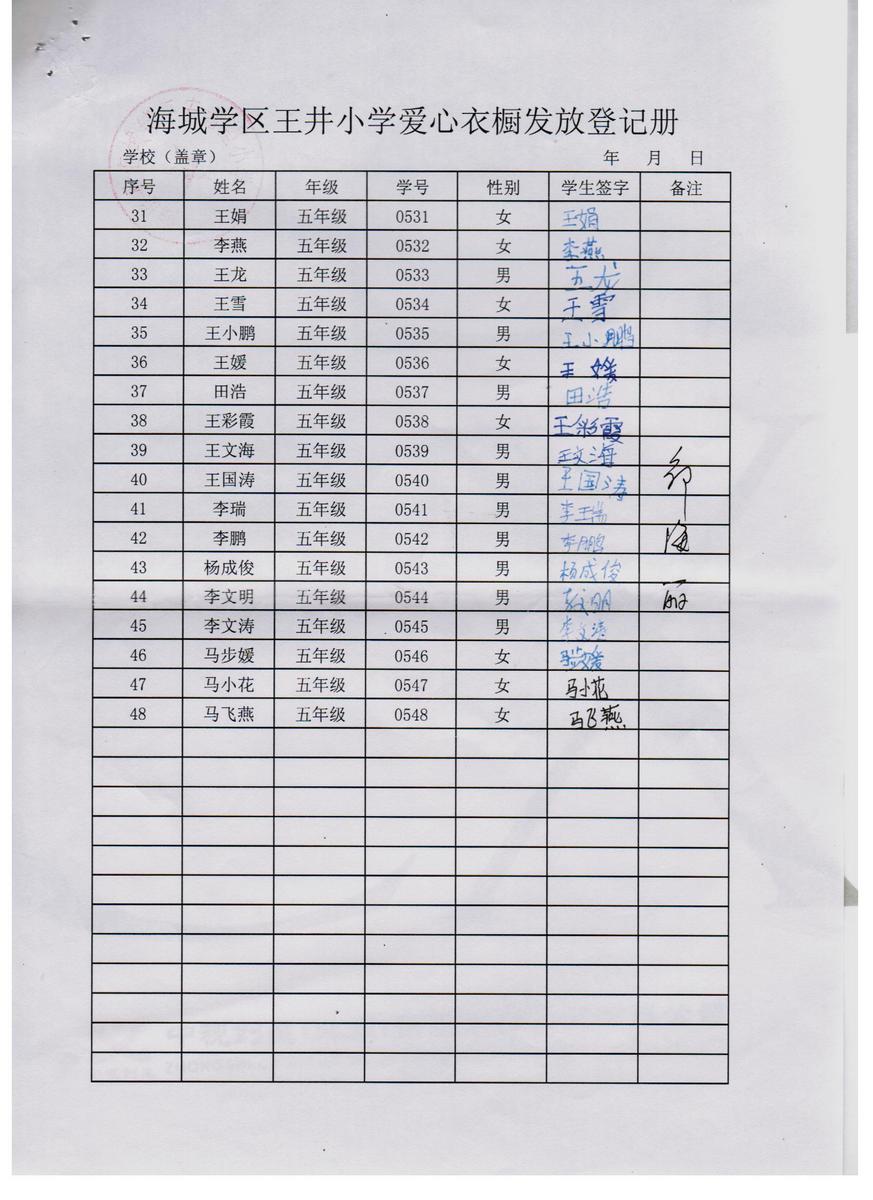 海城学区王井小学爱心衣橱发放登记册
学校（盖章） 年 月 日
序号 姓名 年级 学号 性别 学生签字 备注
31 王娟 五年级 0531 女 王娟
32 李燕 五年级 0532 女 李燕
33 王龙 五年级 0533 男 王龙
34 王雪 五年级 0534 女 王雪
35 王小鹏 五年级 0535 男 王小鹏
36 王媛 五年级 0536 女 王媛
37 田浩 五年级 0537 男 田浩
38 王彩霞 五年级 0538 女 王彩霞
39 王文海 五年级 0539 男 王文海
40 王国涛 五年级 0540 男 王国涛
41 李瑞 五年级 0541 男 李瑞
42 李鹏 五年级 0542 男 李鹏
43 杨成俊 五年级 0543 男 杨成俊
44 李文明 五年级 0544 男 李文明
45 李文涛 五年级 0545 男 李文涛
46 马步媛 五年级 0546 女 马步媛
47 马小花 五年级 0547 女 马小花
48 马飞燕 五年级 0548 女 马飞燕
海
丽